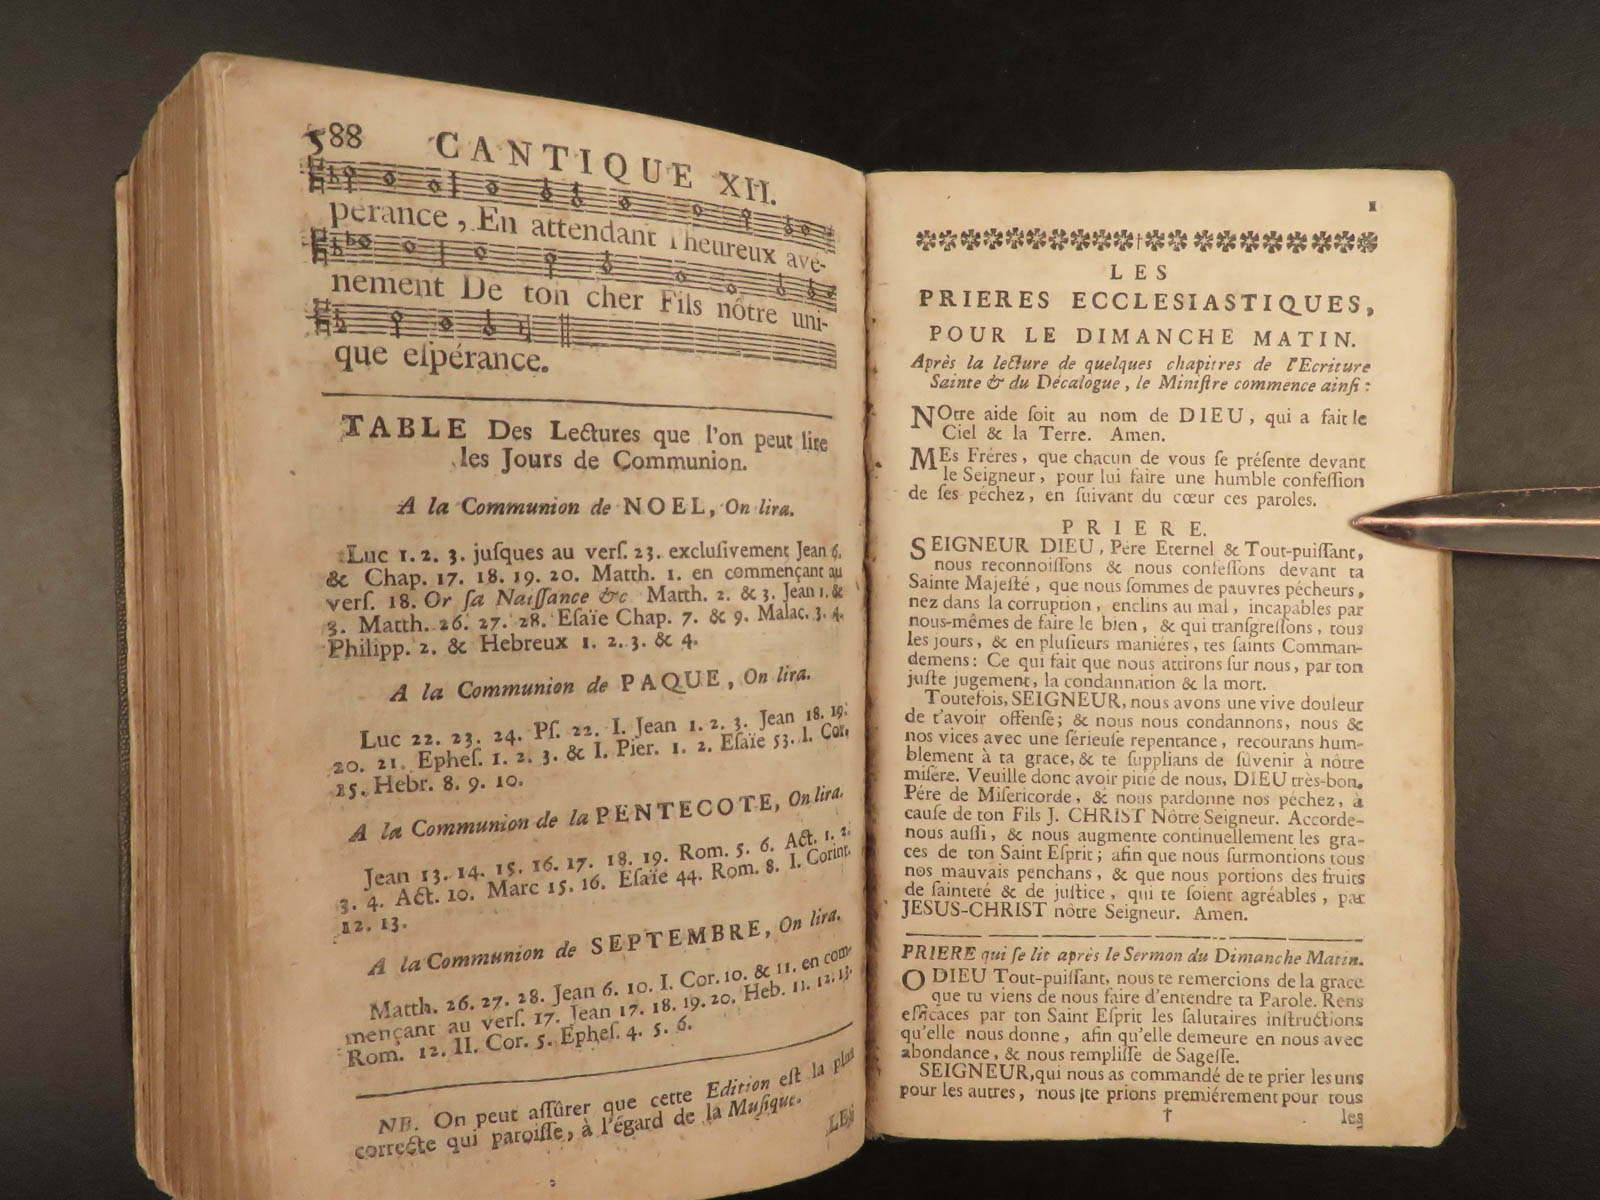 588 CANTIQUE XII.
perance, En attendant l'heureux avé-
nement De ton cher Fils nôtre uni-
que eſpérance.
TABLE Des Lectures que l'on peut lire
les Jours de Communion.
A la Communion de NOEL, On lira.
Luc 1. 2. 3. juſques au verſ. 23. excluſivement Jean 6.
& Chap. 17. 18. 19. 20. Matth. 1. en commençant au
verſ. 18. Or ſa Naiſſance &c. Matth. 2. & 3. Jean 1. &
3. Matth. 26. 27. 28. Eſaïe Chap. 7. & 9. Malac. 3. 4.
Philipp. 2. & Hebreux 1. 2. 3. & 4.
A la Communion de PAQUE, On lira.
Luc 22. 23. 24. Pſ. 22. I. Jean 1. 2. 3. Jean 18. 19.
20. 21. Epheſ. 1. 2. 3. & I. Pier. 1. 2. Eſaïe 53. I. Cor.
15. Hebr. 8. 9. 10.
A la Communion de la PENTECOTE, On lira.
Jean 13. 14. 15. 16. 17. 18. 19. Rom. 5. 6. Act. 1. 2.
3. 4. Act. 10. Marc 15. 16. Eſaïe 44. Rom. 8. I. Corint.
12. 13.
A la Communion de SEPTEMBRE, On lira.
Matth. 26. 27. 28. Jean 6. 10. I. Cor. 10. & 11. en com-
mençant au verſ. 17. Jean 17. 18. 19. 20. Heb. 11. 12. 13.
Rom. 12. II. Cor. 5. Epheſ. 4. 5. 6.
NB. On peut aſſûrer que cette Edition eſt la plus
correcte qui paroiſſe, à l'égard de la Muſique.
LES
1
LES
PRIERES ECCLESIASTIQUES,
POUR LE DIMANCHE MATIN.
Après la lecture de quelques chapitres de l'Ecriture
Sainte & du Décalogue, le Miniſtre commence ainſi :
NOtre aide ſoit au nom de DIEU, qui a fait le
Ciel & la Terre. Amen.
MEs Fréres, que chacun de vous ſe préſente devant
le Seigneur, pour lui faire une humble confeſſion
de ſes péchez, en ſuivant du cœur ces paroles.
PRIERE.
SEIGNEUR DIEU, Pére Eternel & Tout-puiſſant,
nous reconnoiſſons & nous confeſſons devant ta
Sainte Majeſté, que nous ſommes de pauvres pécheurs,
nez dans la corruption, enclins au mal, incapables par
nous-mêmes de faire le bien, & qui tranſgreſſons, tous
les jours, & en pluſieurs maniéres, tes ſaints Comman-
demens : Ce qui fait que nous attirons ſur nous, par ton
juſte jugement, la condannation & la mort.
Toutefois, SEIGNEUR, nous avons une vive douleur
de t'avoir offenſé; & nous nous condannons, nous &
nos vices avec une ſérieuſe repentance, recourans hum-
blement à ta grace, & te ſupplians de ſuvenir à nôtre
miſére. Veuille donc avoir pitié de nous, DIEU très-bon,
Pére de Miſericorde, & nous pardonne nos péchez, à
cauſe de ton Fils J. CHRIST Nôtre Seigneur. Accorde-
nous auſſi, & nous augmente continuellement les gra-
ces de ton Saint Eſprit; afin que nous ſurmontions tous
nos mauvais penchans, & que nous portions des fruits
de ſainteté & de juſtice, qui te ſoient agréables, par
JESUS-CHRIST nôtre Seigneur. Amen.
PRIERE qui ſe lit après le Sermon du Dimanche Matin.
O DIEU Tout-puiſſant, nous te remercions de la grace
que tu viens de nous faire d'entendre ta Parole. Rens
efficaces par ton Saint Eſprit les ſalutaires inſtructions
qu'elle nous donne, afin qu'elle demeure en nous avec
abondance, & nous rempliſſe de Sageſſe.
SEIGNEUR, qui nous as commandé de te prier les uns
pour les autres, nous te prions premiérement pour tous
† les